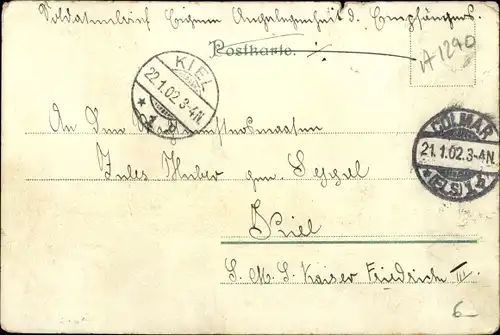 Soldatenbrief Eigene Angelegenheit d. Empfängers.
Postkarte.
A 1290
KIEL
22.1.02.3-4N.
COLMAR
21.1.02.3-4N.
(ELS) 1
An Den
Jules Huber gen.
Kiel
S. M. S. Kaiser Friedrich III
6-